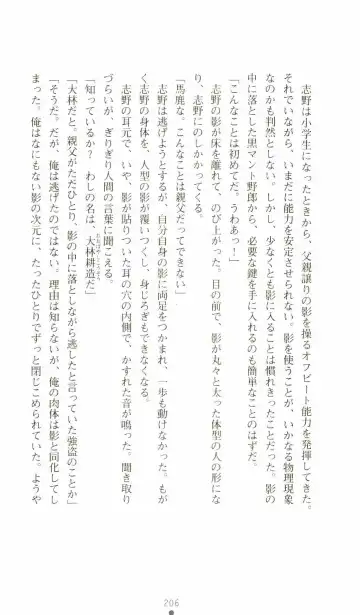 志野は小学生になったときから、父親譲りの影を操るオフビート能力を発揮してきた。
それでいながら、いまだに能力を安定させられない。影を使うことが、いかなる物理現象
なのかも判然としない。しかし、少なくとも影に入ることは慣れきったことだった。影の
中に落とした黒マント野郎から、必要な鍵を手に入れるのも簡単なことのはずだ。
「こんなことは初めてだ。うわあっ！」
志野の影が床を離れて、のび上がった。目の前で、影が丸々と太った体型の人の形にな
り、志野にのしかかってくる。
「馬鹿な。こんなことは親父だってできない」
志野は逃げようとするが、自分自身の影に両足をつかまれ、一歩も動けなかった。もが
く志野の身体を、人型の影が覆いつくし、身じろぎもできなくなる。
志野の耳元で、いや、影が貼りついた耳の穴の内側で、かすれた音が鳴った。聞き取り
づらいが、ぎりぎり人間の言葉に聞こえる。
「知っているか？　わしの名は、大林耕造だ」
「大林だと。親父がただひとり、影の中に落としながら逃したと言っていた強盗のことか」
「そうだ。だが、俺は逃げたのではない。理由は知らないが、俺の肉体は影と同化してし
まった。俺はなにもない影の次元に、たったひとりでずっと閉じこめられていた。ようや
206